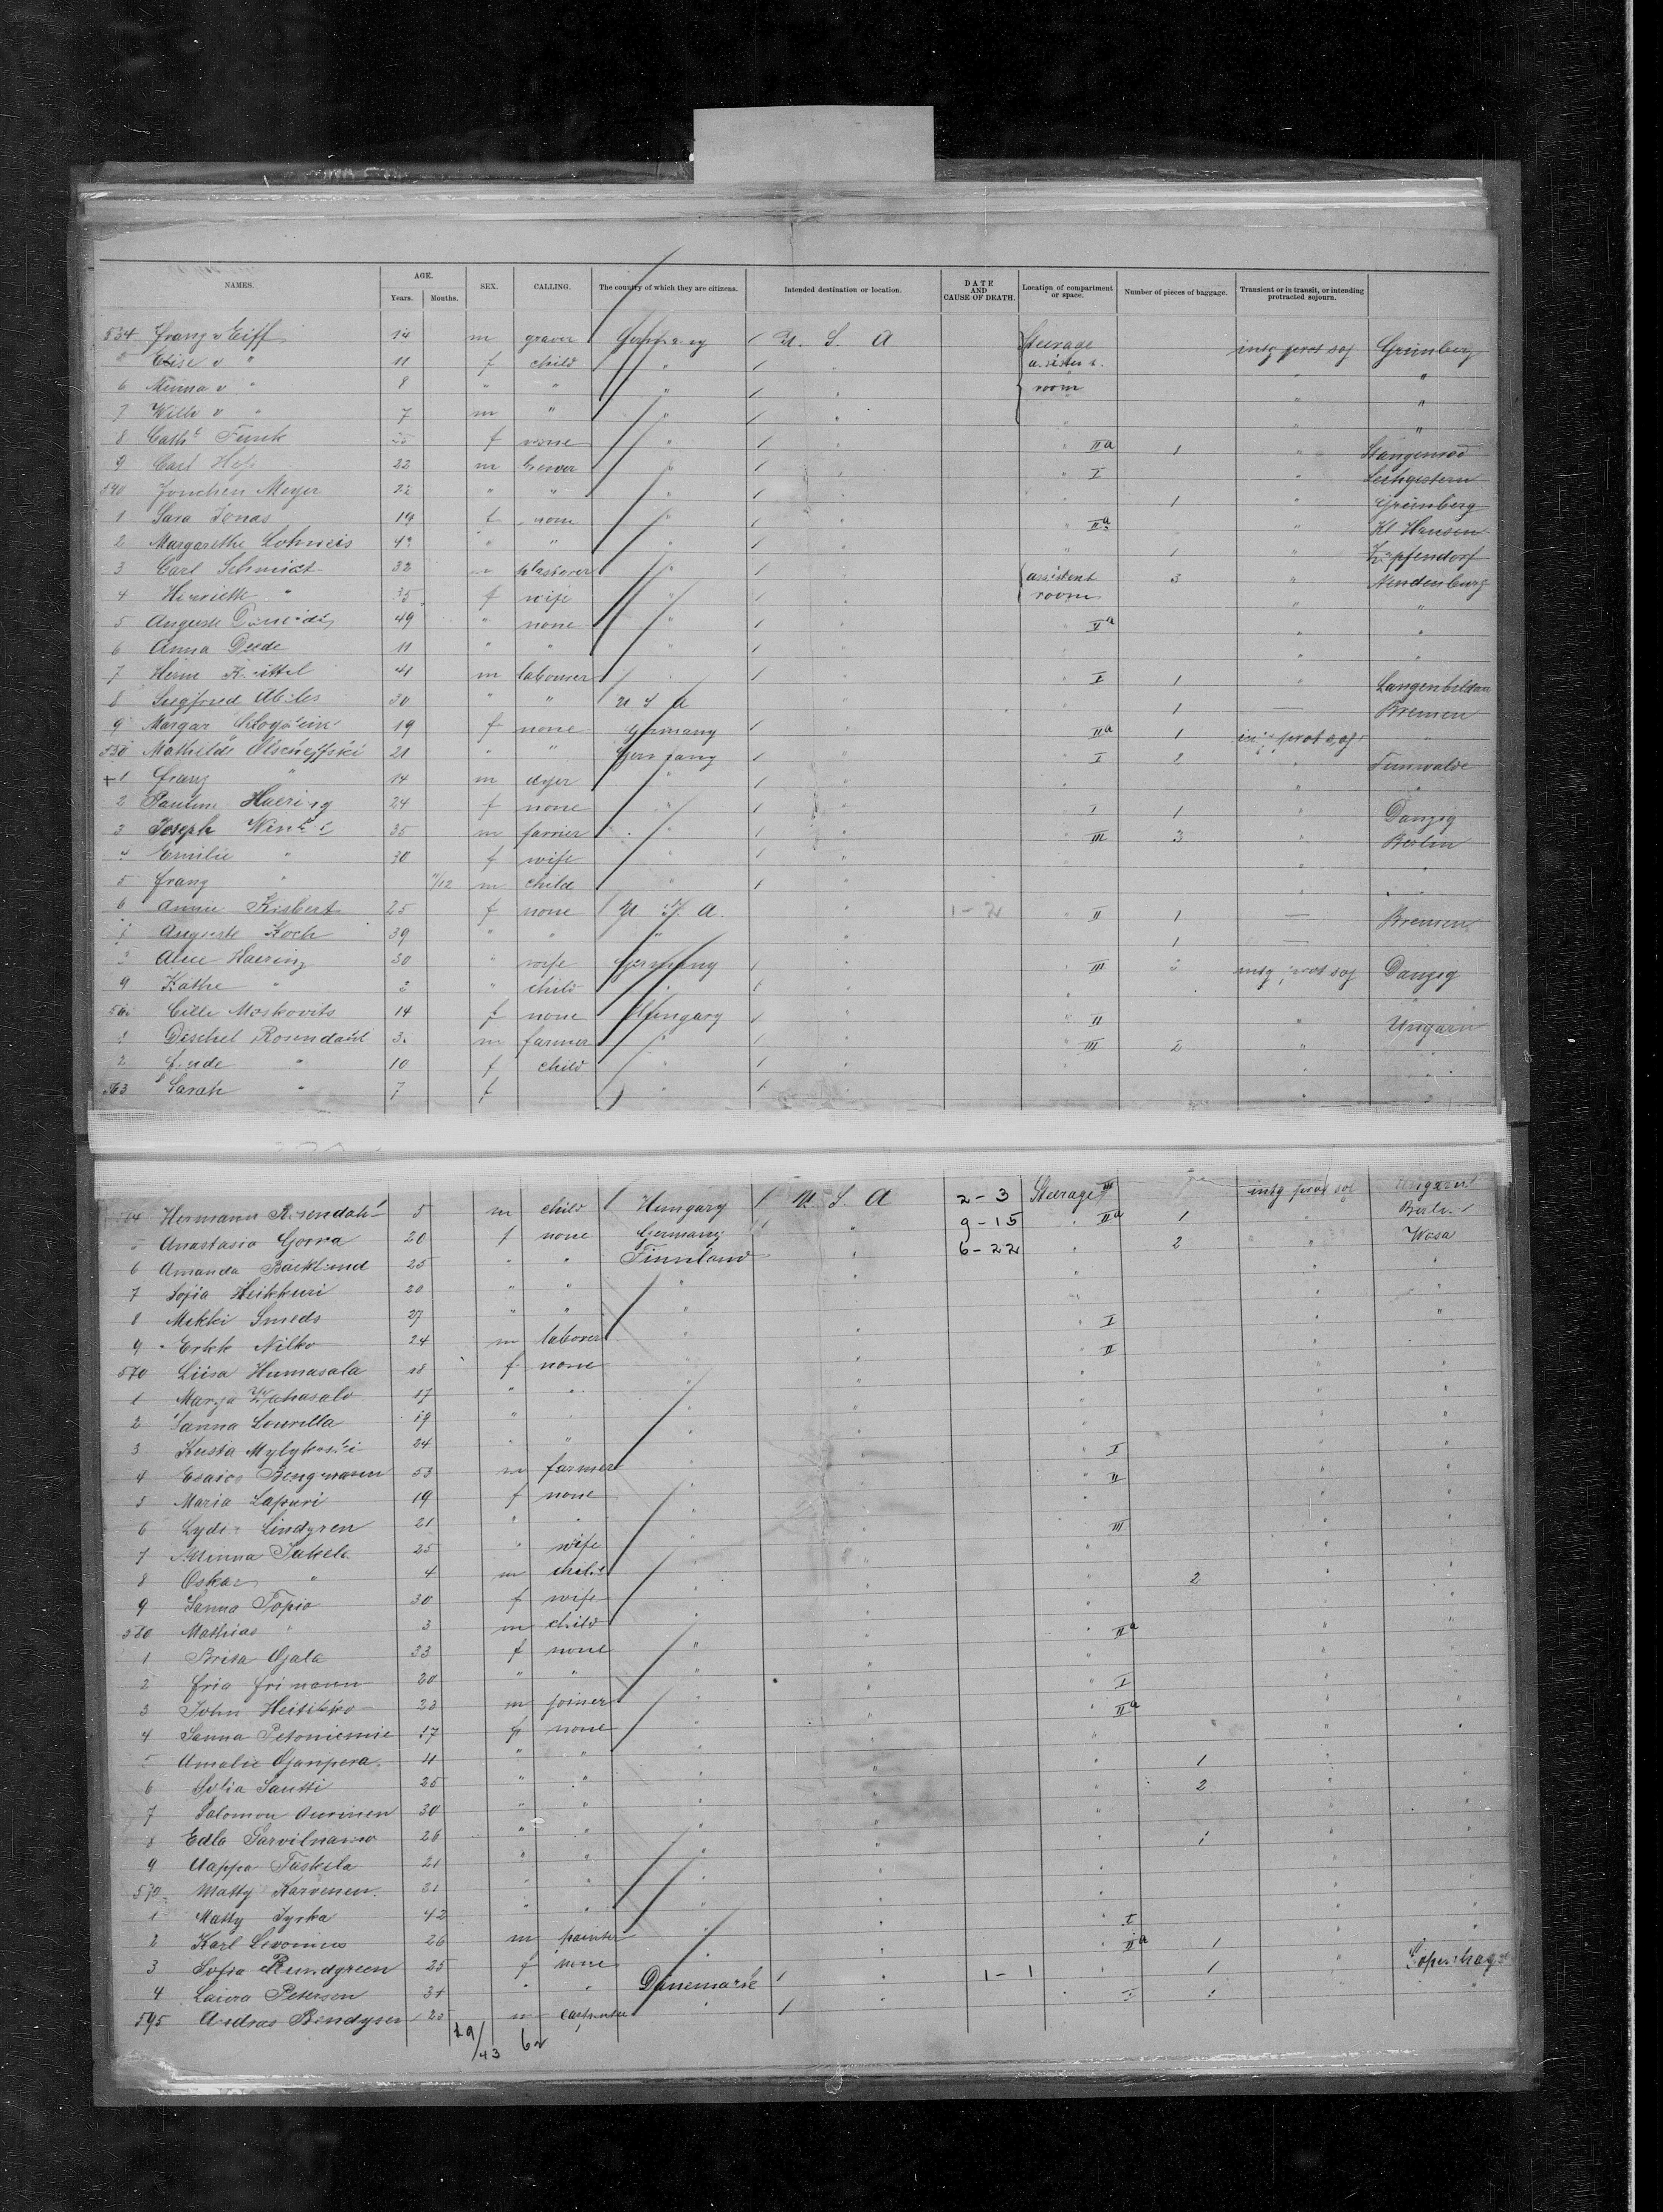 NAMES. AGE. Years. Months. SEX. CALLING. The country of which they are citizens. Intended destination or location. DATE AND CAUSE OF DEATH. Location of compartment or space. Number of pieces of baggage. Transient or in transit, or intending protracted sojourn.
534 Franz v Eiff 14 m graver Germany / U. S. A Steerage intg prot soj Grünberg
5 Elise v " 11 f child " / " a. sister s. " "
6 Minna v " 8 " " " / " room " "
7 Willi v " 7 m " " / " " "
8 Cath. Funk 25 f none " / " " IIa 1 " Stangenrod
9 Carl Heß 22 m " / " " I " Leihgestern
540 Jonchen Meyer 22 " " " / " " 1 " Grünberg
1 Sara Jonas 19 f none " / " " IIa " Kl. Hausen
2 Margarethe Lohneis 42 " " " / " " 1 " Zapfendorf
3 Carl Schmidt 32 m " / " assistent 3 " Neudenburg
4 Henriette " 35 f wife " / " room " "
5 Auguste 49 " none " / " " IIa " "
6 Anna Deede 11 " " " / " " " "
7 Herm Knittel 41 m labourer / " I 1 " Langenbeldau
8 Siegfried Abeles 30 " " U S A " 1 — Bremen
9 Margar 19 f none Germany / " IIa 1 intg prot soj "
550 Mathilde Olschefski 21 " " Germany / " I 2 " Tunwalde
+1 Franz " 14 m dyer " / " " "
2 Pauline Haering 24 f none " / " I 1 " Danzig
3 Joseph 35 m farrier " / " III 3 " Berlin
4 Emilie " 30 f wife " / " " "
5 Franz " 11/12 m child " / " "
6 Annie Kisbert 25 f none / U. S. A. " 1-2 " II 1 — Bremen
7 Auguste Koch 39 " " " " 1 — "
8 Alice Haering 30 " wife Germany / " " III 2 intg prot soj Danzig
9 Käthe " 2 " child " / " " "
560 Cilli Moskovits 14 f none Hungary / " " II " Ungarn
1 Dischel Rosendahl 3. m farmer " / " " III 2 " "
2 " 10 f child " / " " " "
563 Sarah " 7 f " / " "
564 Hermann Rosendahl 5 m child / Hungary / U. S. A 2-3 Steerage III intg prot soj Ungarn
5 Anastasia Gorna 20 f none Germany " 9-15 " IIa 1 " Berlin
6 Amanda Backlund 25 " " Finnland " 6-22 " 2 " Wasa
7 Sofia Heikkuri 20 " " " " " " "
8 Mikki Smeds 27 " " " " I " "
9 Erkk Nilko 24 m laborer " " " II "
570 Liisa Humasala 18 f none " " " " "
1 Marja 17 " " " " " " "
2 Sanna Lourilla 19 " " " " " " "
3 Kusta Mylykoski 24 " " " " " I " "
4 Esaias Bengmann 53 m farmer " " " II " "
5 Maria Lapuri 19 f none " " " " "
6 Lydia Lindgren 21 " " " " III " "
7 Minna Jakela 25 " wife " " " " "
8 Oskar " 4 m child " " " 2 " "
9 Sanna Topio 30 f wife " " " " "
580 Mathias " 3 m child " " " IIa " "
1 Brita Ojala 33 f none " " " " "
2 20 " " " " " I " "
3 John Heitikko 23 m joiner " " " IIa " "
4 Sanna Petoniemie 17 f none " " " " "
5 Amalie Ojanpera 11 " " " " " 1 "
6 Sofia Sautti 25 " " " " " 2 " "
7 Salomon Aurinen 30 " " " " " " "
8 Edla 26 " " " " " 1 " "
9 Uappa Tuskela 21 " " " " " " "
590 Matty Karvonen 21 " " " " " " "
1 Matty Jyrka 42 " " " " " I " "
2 Karl Levonius 26 m painter " " " IIa 1 " "
3 Sofia Rundgreen 25 f none " " " 1 "
4 Laura Petersen 31 " " Danemark / " 1-1 " I 1 " Copenhagen
595 Andras Bendysen 25 m carpenter " / "
19/43 62